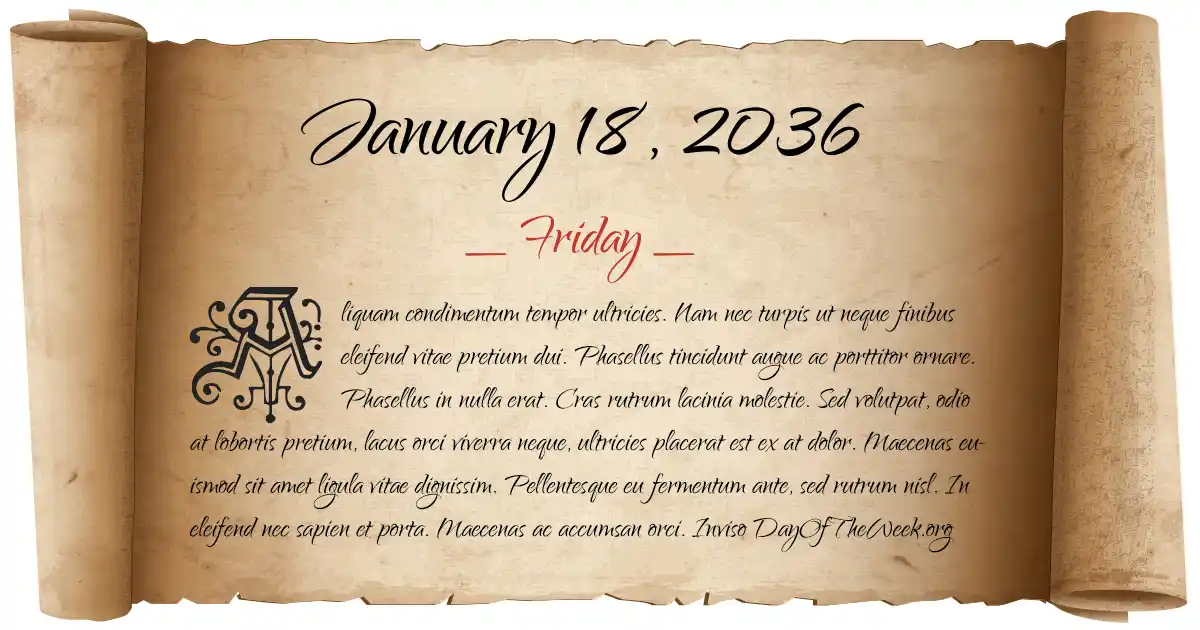 January 18, 2036
— Friday —
Aliquam condimentum tempor ultricies. Nam nec turpis ut neque finibus
eleifend vitae pretium dui. Phasellus tincidunt augue ac porttitor ornare.
Phasellus in nulla erat. Cras rutrum lacinia molestie. Sed volutpat, odio
at lobortis pretium, lacus orci viverra neque, ultricies placerat est ex at dolor. Maecenas eu-
ismod sit amet ligula vitae dignissim. Pellentesque eu fermentum ante, sed rutrum nisl. In
eleifend nec sapien et porta. Maecenas ac accumsan orci. Inviso DayOfTheWeek.org